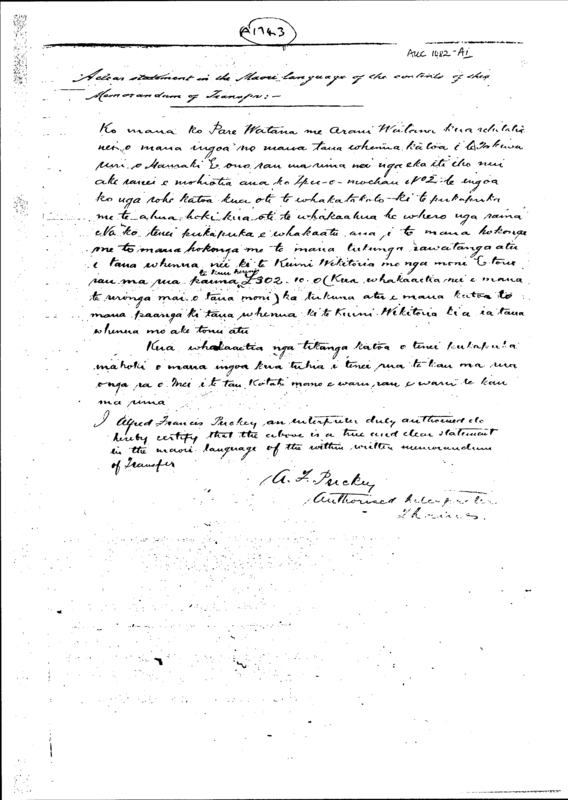 A1743
AUC 1482-A1
A clear statement in the Maori language of the contents of this
Memorandum of Transfer :-
Ko maua ko Pare Watana me Arani Watana kua tuhituhia
nei o maua ingoa no maua tana whenua katoa i te Takiwa
o Hauraki E ono rau ma rima nei nga eka iti iho nui
ake ranei e mohiotia ana ko Ipu-o-mochau No 2 te ingoa
ko nga rohe katoa kua oti te whakatakoto ki te pukapuka
me te ahua hoki kua oti te whakaahua he whero nga raina
Na ko tenei pukapuka e whakaatu ana i to maua hokonga
me to maua hokonga me to maua tukunga rawatanga atu
i taua whenua nei ki te Kuini Wikitoria mo nga moni E toru
te kau hereni
rau ma rua pauna £302.10.0 (Kua whakaaetia nei e maua
te uronga mai o taua moni) ka tukuna atu e maua katoa to
maua paanga ki taua whenua ki te Kuini Wikitoria kia ia taua
whenua mo ake tonu atu
Kua whakaaetia nga tikanga katoa o tenei pukapuka
ma hoki o maua ingoa kua tuhia i tenei rua te kau ma rua
o nga ra o Mei i te tau Kotahi mano e waru rau e waru te kau
ma rima
I Alfred Francis Puckey, an interpreter duly authorised do
hereby certify that the above is a true and clear statement
in the maori language of the within written memorandum
of Transfer
A. F. Puckey
Authorised Interpreter
Thames.